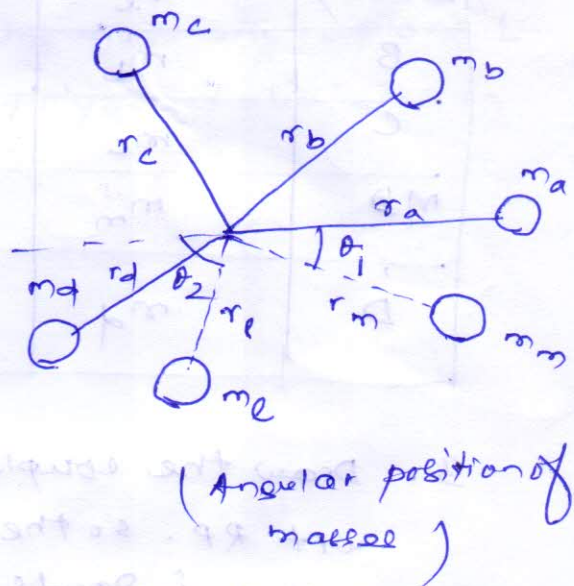 m c
m b
r c
r b
m a
r a
θ 1
r d
θ 2
m d
r e
r m
m m
m e
( Angular position of
masses )